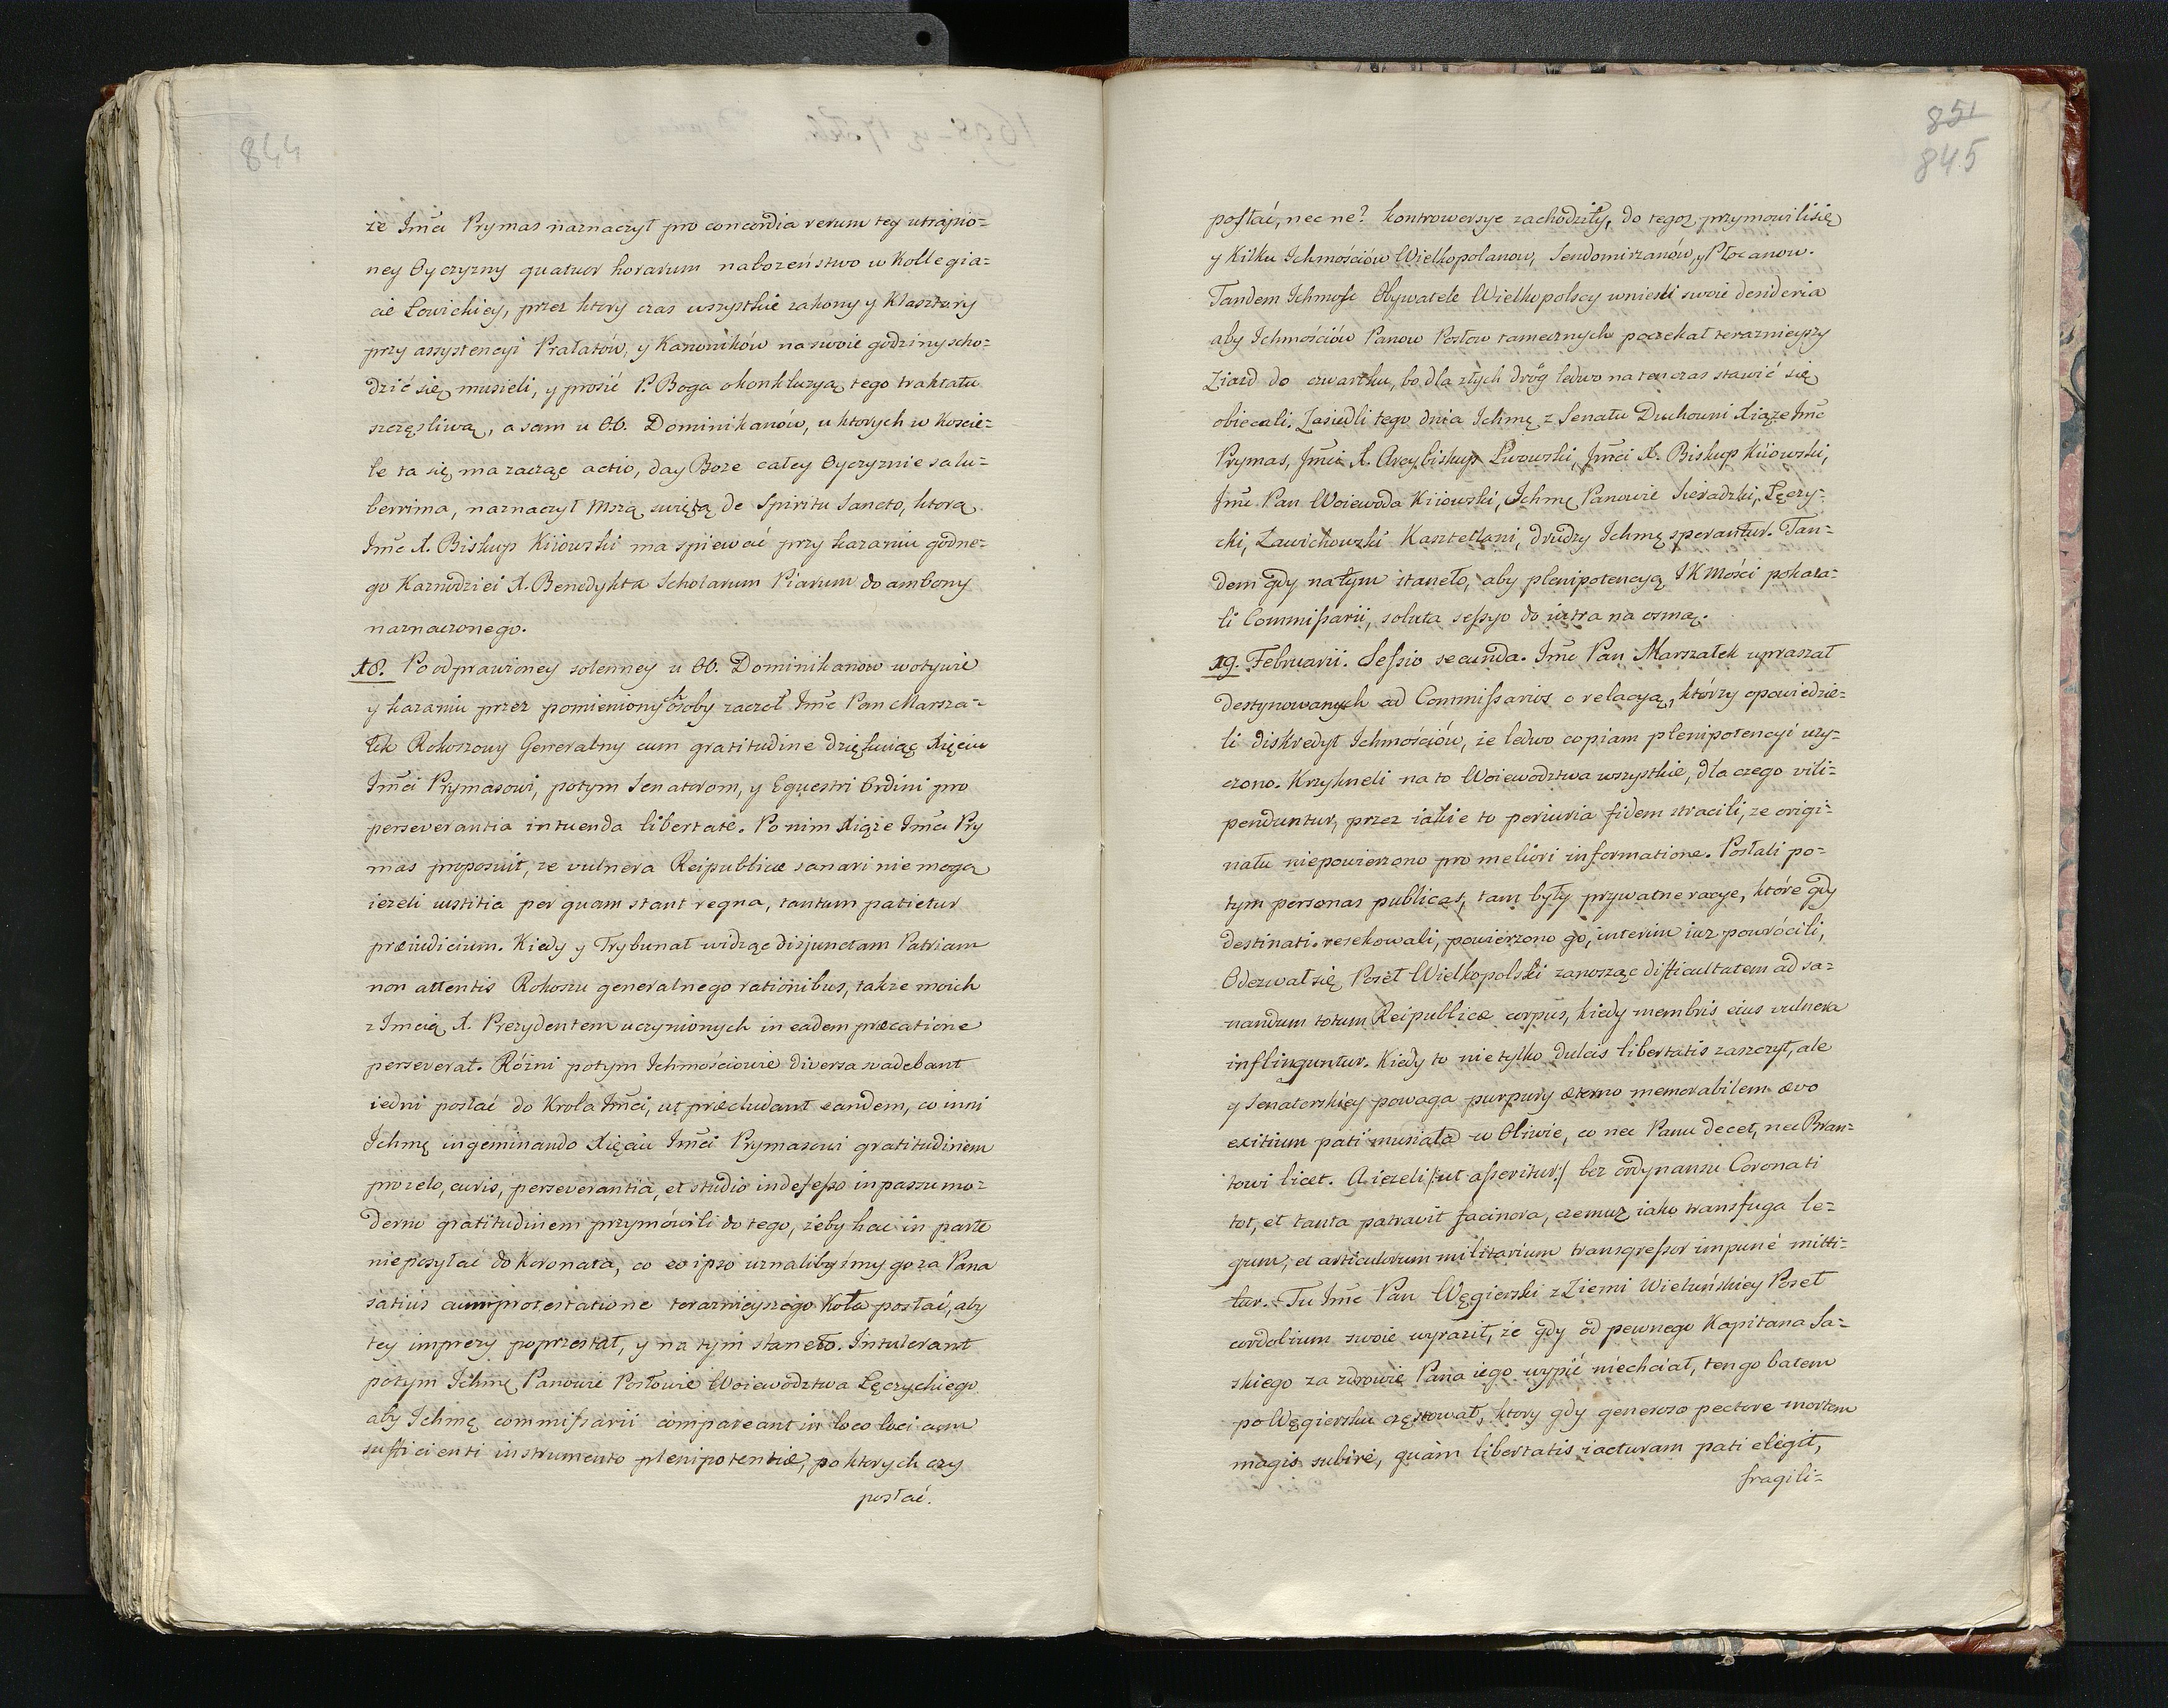 844
że Jmći Prymas naznaczył pro concordia rerum tey utrapio=
ney Oyczyzny quatuor horarum nabożeństwo w Kollegia=
cie Łowickiey, przez ktory czas wszystkie zakony y Klasztory
przy assystencyi Prałatów, y Kanoników na swoie godziny scho=
dzić się musieli, y prosić P. Boga o konkluzyą tego traktatu
szczęsliwą, a sam u OO. Dominikanów, u ktorych w Koście=
le ta się ma zacząc actio, day Boże całey Oyczyznie salu=
berrima, naznaczył Mszą swiętą de Spiritu Sancto, ktorą
Jmć X. Biskup Kiiowski ma spiewać przy kazaniu godne=
go Kaznodziei X. Benedykta Scholarum Piarum do ambony
naznaczonego.
18. Po odprawioney solenney u OO. Dominikanow wotywie
y kazaniu przez pomienionych osoby zaczoł Jmć Pan Marsza=
łek Rokoszowy Generalny cum gratitudine dziękuiąc Xięciu
Jmći Prymasowi, potym Senatorom, y Equestri Ordini pro
perseverantia in tuenda libertate. Po nim Xiąże Jmći Pry
mas proposuit, ze vulnera Reipublicæ sanari nie mogą
ieżeli iustitia per quam stant regna, tantum patietur
præiudicium. Kiedy y Trybunał widząc disjunctam Patriam
non attentis Rokoszu generalnego rationibus, także moich
z Jmcią X. Prezydentem uczynionych in eadem præcatione
perseverat. Różni potym Ichmościowie diversa suadebant
iedni posłać do Krola Jmći, ut præcludant eandem, co inni
Ichmę ingeminando Xięciu Jmći Prymasowi gratitudinem
pro zelo, curis, perseverantia, et studio indefesso in passu mo=
derno gratitudinem przymówili do tego, żeby hac in parte
nie posyłać do Koronata, co eo ipso uznalibyśmy go za Pana
satius cum protestatione terazniejszego Koła posłać, aby
tey imprezy poprzestał, y na tym staneło. Intulerant
potym Ichmę Panowie Posłowie Woiewodztwa Łęczyckiego
aby Ichmę commissarii compareant in loco loci cum
sufficienti instrumento plenipotentiæ, po ktorych czy
posłać.
851
845
posłać, nec ne? kontrowersye zachodziły, do tegoż przymowili się
y Kilku Ichmościów Wielkopolanow, Sendomirzanów, y Płocanow.
Tandem Ichmość Obywatele Wielkopolscy wnieśli swoie desideria
aby Ichmościów Panow Posłow tamecznych poczekał terazniejszy
Ziazd do czwartku, bo dla złych dróg ledwo na ten czas stawić się
obiecali. Zasiedli tego dnia Ichmę z Senatu Duchowni Xiąże Jmć
Prymas, Jmći X. Arcybiskup Lwowski, Jmći X. Biskup Kiiowski,
Jmć Pan Woiewoda Kiiowski, Ichmę Panowie Sieradzki, Łęczy=
cki, Zawichowski Kasztellani, drudzy Ichmę sperantur. Tan=
dem gdy na tym staneło, aby plenipotencyą JKMości pokaza=
li Commissarii, soluta sessyo do iutra na osmą.
19. Februarii. Sessio secunda. Jmć Pan Marszałek upraszał
destynowanych ad Commissarios o relacyą, którzy opowiedzie=
li diskredyt Ichmościów, że ledwo copiam plenipotencyi uży=
czono. Krzykneli na to Woiewodztwa wszystkie, dla czego vili=
penduntur, przez iakie to periuria fidem stracili, ze origi=
nału niepowierzono pro meliori informatione. Posłali po=
tym personas publicas, tam były prywatne racye, które gdy
destinati resekowali, powierzono go, interim iuz powrócili,
Odezwał się Poseł Wielkopolski zanosząc difficultatem ad sa=
nandum totum Reipublicæ corpus, kiedy membris eius vulnera
inflinguntur. Kiedy to nie tylko dulcis libertatis zaszczyt, ale
y Senatorskiey powaga purpury æterno memorabilem ævo
exitium pati musiała w Oliwie, co nec Panu decet, nec Bran=
towi licet. A ieżeli /:ut asseritur:/ bez ordynansu Coronati
tot, et tanta patravit facinora, czemuz iako transfuga le=
gum, et articulorum militarium transgressor impunè mitti=
tur. Tu Jmć Pan Węgierski z Ziemi Wieluńskiey Poseł
cordolium swoie wyraził, że gdy od pewnego Kapitana Sa=
skiego za zdrowie Pana iego wypić niechciał, ten go batem
po Węgiersku częstował, ktory gdy generoso pectore mortem
magis subire, quàm libertatis iacturam pati elegit,
fragili=